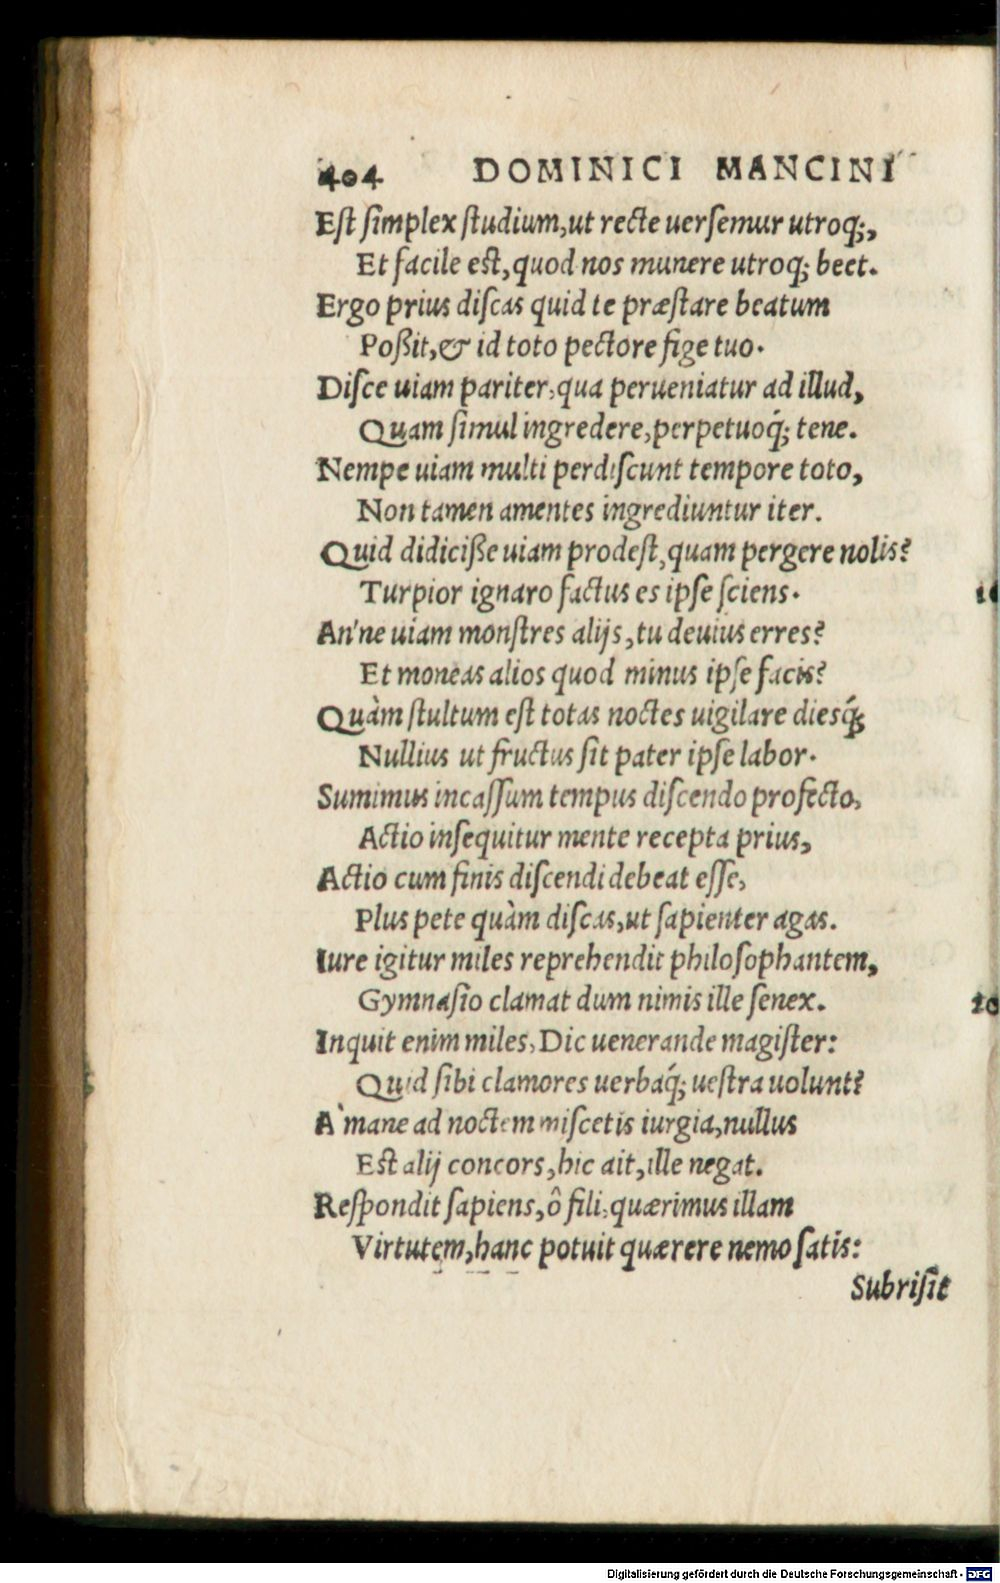 404 DOMINICI MANCINI
Est simplex studium, ut recte uersemur utroq;,
Et facile est, quod nos munere utroq; beet.
Ergo prius discas quid te præstare beatum
Poßit, & id toto pectore fige tuo.
Disce uiam pariter, qua perueniatur ad illud,
Quam simul ingredere, perpetuoq́; tene.
Nempe uiam multi perdiscunt tempore toto,
Non tamen amentes ingrediuntur iter.
Quid didiciße uiam prodest, quam pergere nolis?
Turpior ignaro factus es ipse sciens.
An'ne uiam monstres alijs, tu deuius erres?
Et moneas alios quod minus ipse facis?
Quàm stultum est totas noctes uigilare diesq́;
Nullius ut fructus sit pater ipse labor.
Sumimus incassum tempus discendo profecto,
Actio insequitur mente recepta prius,
Actio cum finis discendi debeat esse,
Plus pete quàm discas, ut sapienter agas.
Iure igitur miles reprehendit philosophantem,
Gymnasio clamat dum nimis ille senex.
Inquit enim miles, Dic uenerande magister:
Quid sibi clamores uerbaq́; uestra uolunt?
A` mane ad noctem miscetis iurgia, nullus
Est alij concors, hic ait, ille negat.
Respondit sapiens, ô fili, quærimus illam
Virtutem, hanc potuit quærere nemo satis:
Subrisit
10
20
Digitalisierung gefördert durch die Deutsche Forschungsgemeinschaft - DFG